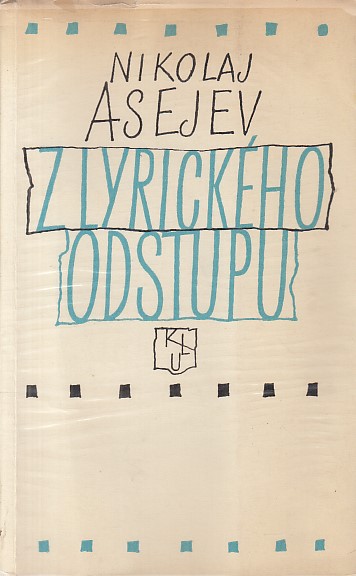 NIKOLAJ
ASEJEV
Z LYRICKÉHO
ODSTUPU
KLU